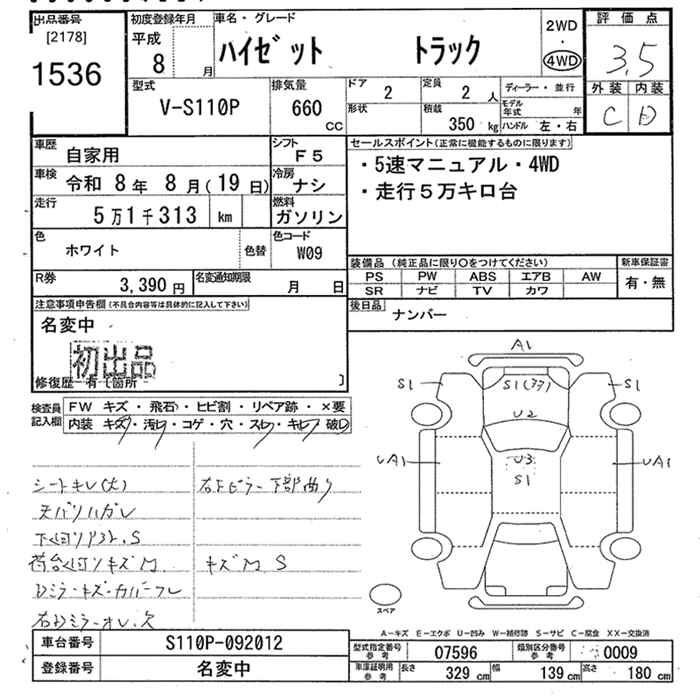 出品番号
[2178]
1536
初度登録年月
平成
8 月
車名・グレード
ハイゼット トラック
2WD
・
4WD
評価点
3.5
外装 内装
C D
型式
V-S110P
排気量
660 CC
ドア
2
定員
2 人
形状
積載
350 kg
ディーラー・並行
モデル年式 年
ハンドル 左・右
車歴 自家用
シフト F5
車検 令和 8年 8月(19日)
冷房 ナシ
走行 5万1千313 km
燃料 ガソリン
色 ホワイト 色替
色コード W09
R券 3,390円
名変通知期限 月 日
セールスポイント(正常に機能するものに限ります)
・5速マニュアル・4WD
・走行5万キロ台
装備品 (純正品に限り○をつけてください)
PS PW ABS エアB AW
SR ナビ TV カワ
新車保証書
有・無
後日品 ナンバー
注意事項申告欄(不具合内容等は具体的に記入して下さい)
名変中
初出品
修復歴 有〔箇所 〕
検査員記入欄
FW キズ・飛石・ヒビ割・リペア跡・×要
内装 キズ・汚レ・コゲ・穴・スレ・キレ・破レ
シートキレ(大)
天バリハガレ
下廻りサビ.S
荷台廻りキズM
キズM S
右ドミラーオレ.欠
A1
S1
S1
U2
UA1
U3
S1
UA1
スペア
A-キズ E-エクボ U-凹み W-補修跡 S-サビ C-腐食 XX-交換済
車台番号 S110P-092012
登録番号 名変中
型式指定番号 参考 07596
類別区分番号 参考 0009
車庫証明用 参考
長さ 329 cm 幅 139 cm 高さ 180 cm